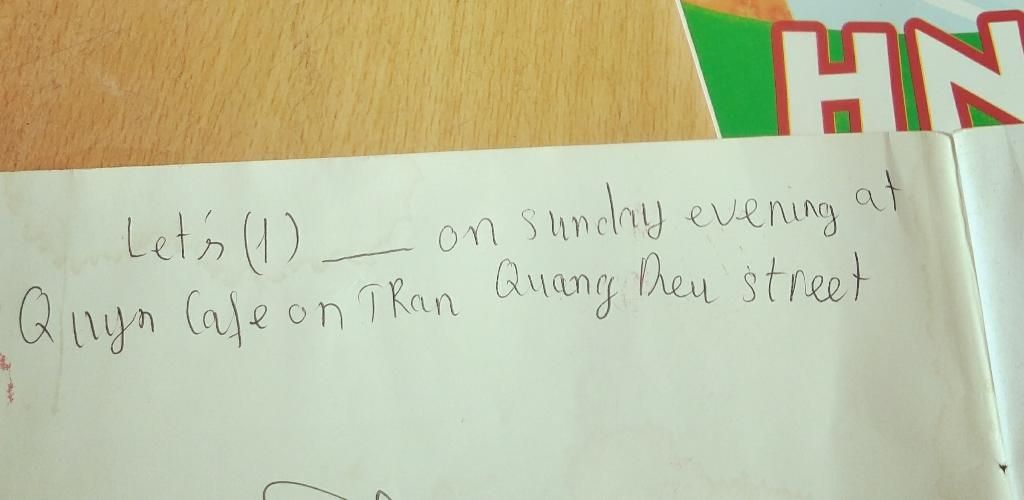 HN
Let's (1) ___ on sunday evening at
Quyn Cafe on TRan Quang Dieu street